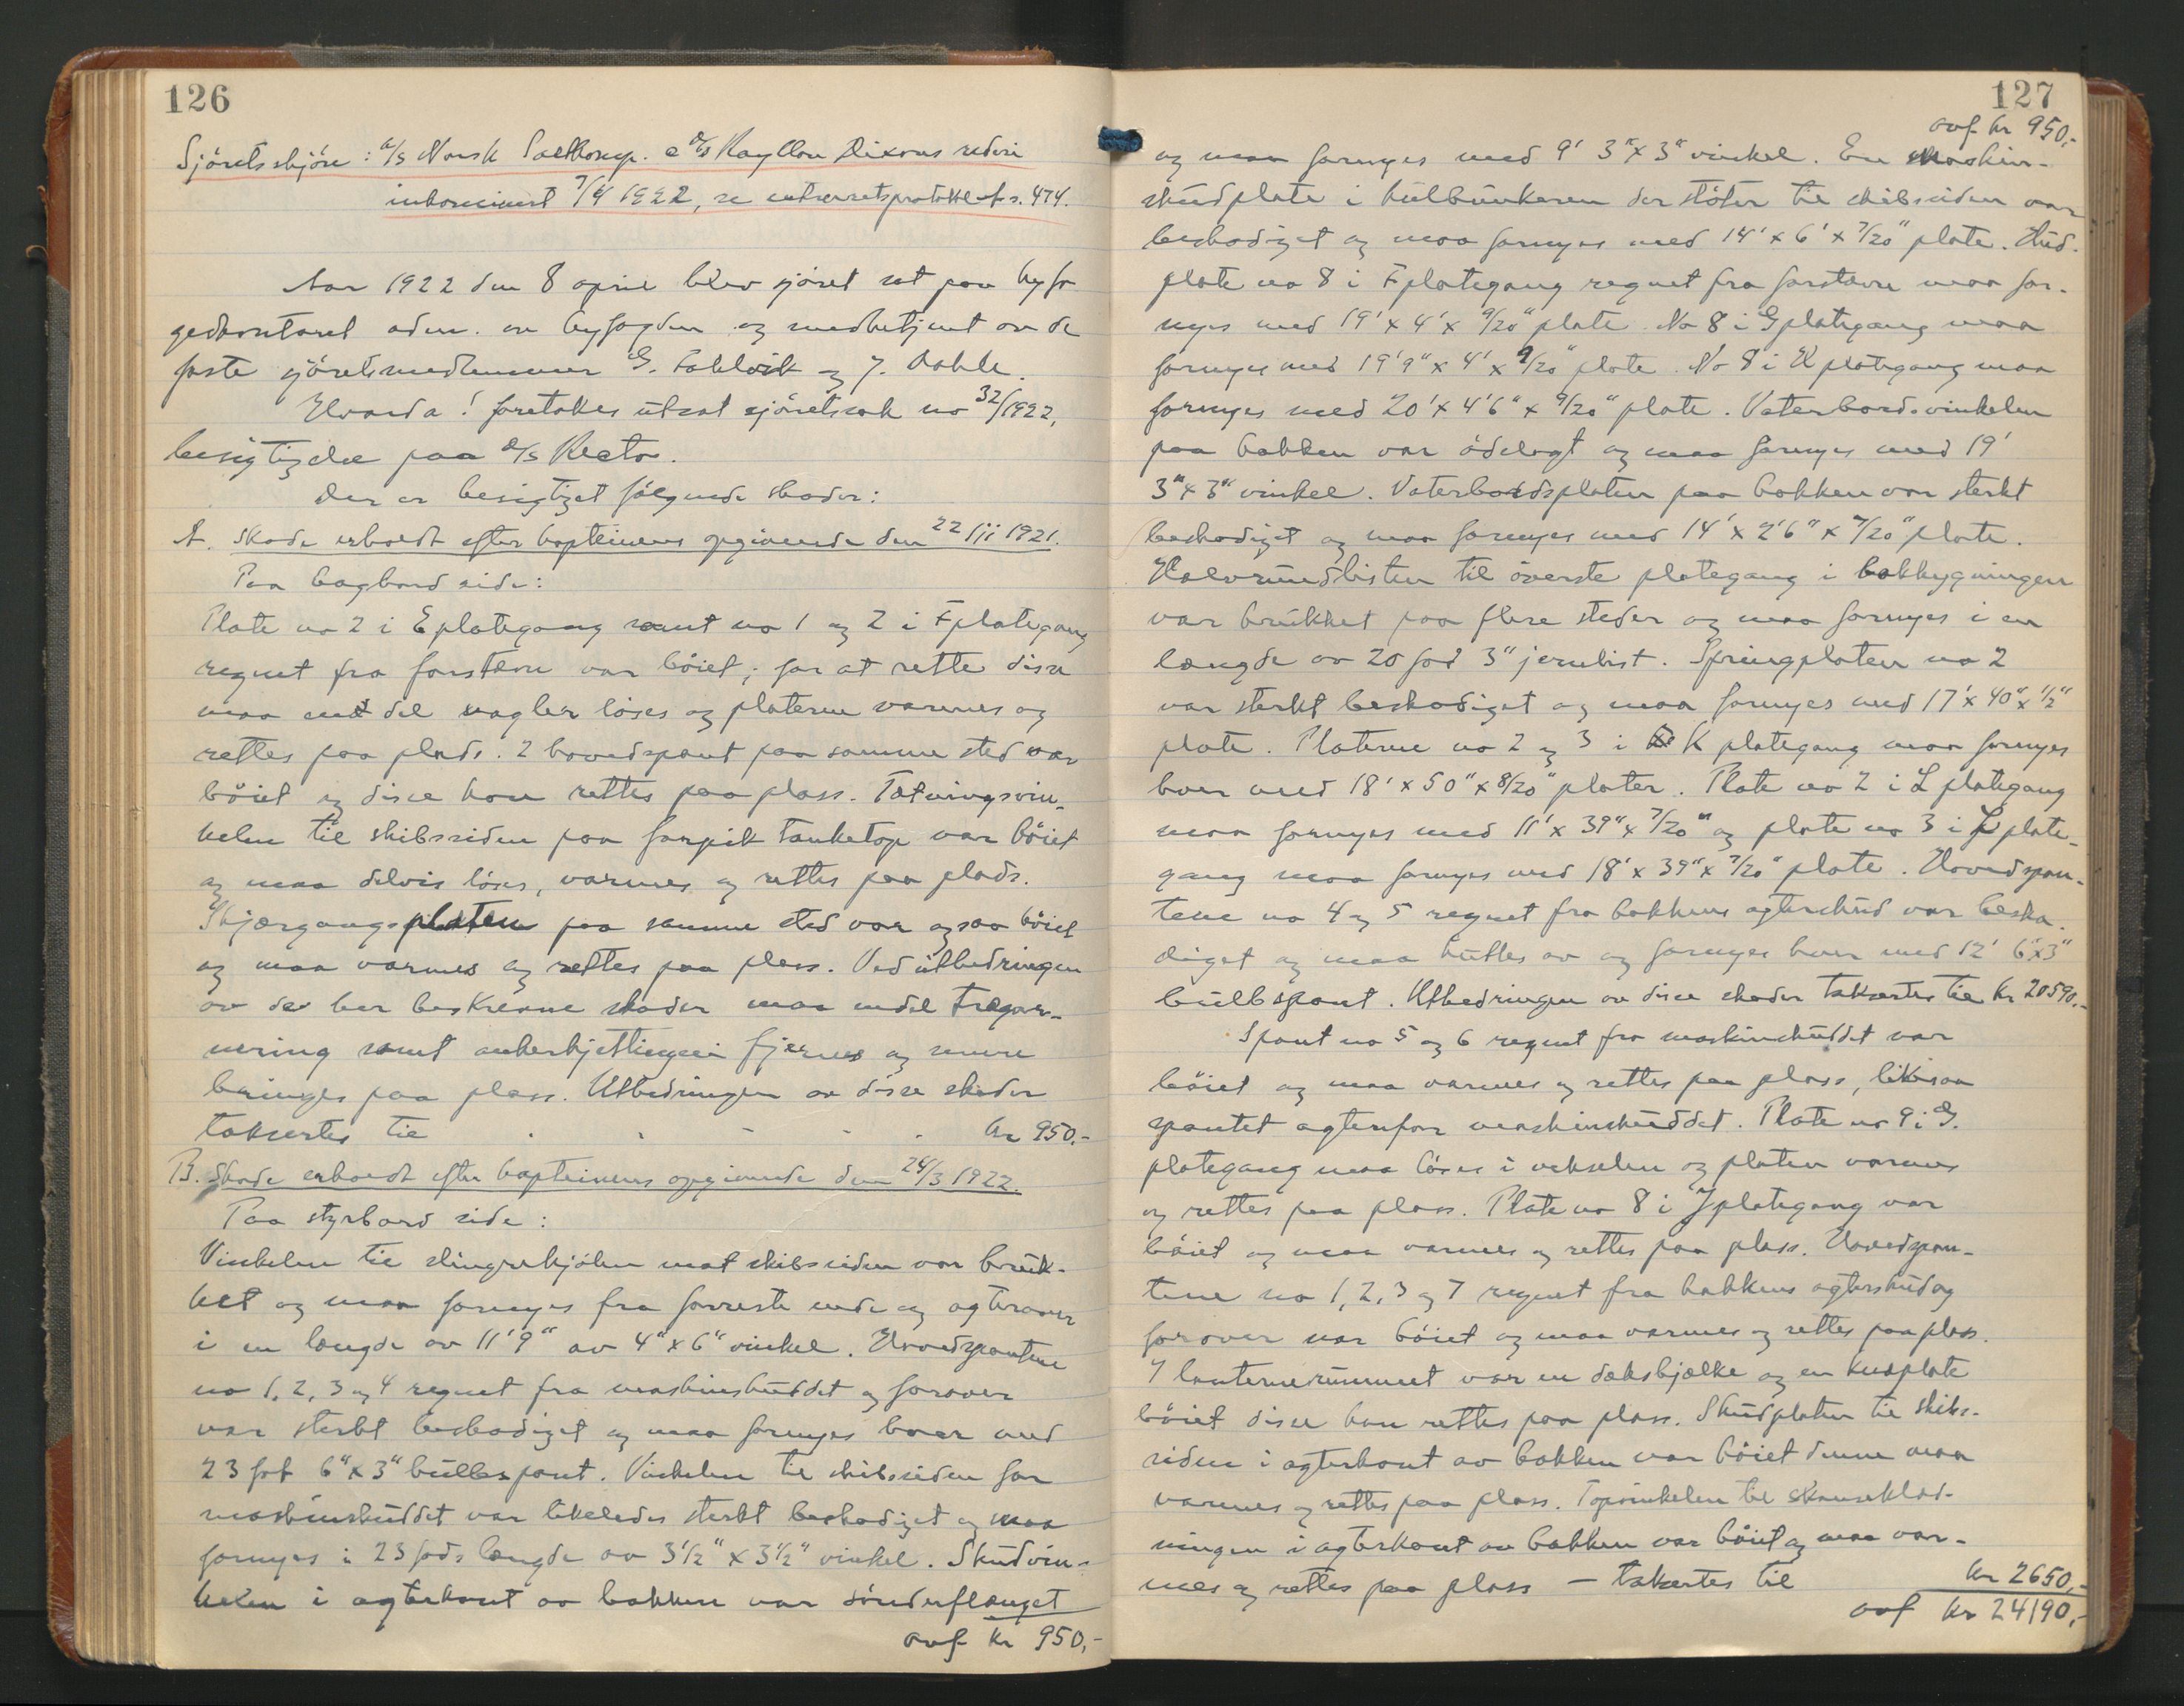 126
Sjöretsskjön: a/s Norsk Saltkomp. c d/s Rayllon Dixons rederi
inkaminert 7/4 1922, se extraretsprotokol s. 474.
Aar 1922 den 8 april blev sjöret sat paa byfo
gedkontoret adm. av byfogden og medbetjent av de
faste sjöretsmedlemmer G. Eckholdt og J. Dahle.
Hvorda! foretokes utsat sjöretssak no 32/1922,
besigtigelse paa d/s Recto.
Der er besigtiget fölgende skader:
A. Skade erholdt efter kapteinens opgivende den 22/11 1921.
Paa bagbord side:
Plate no 2 i E plategang samt no 1 og 2 i F plategang
regnet fra forstævn var böiet; for at rette disse
maa endel nagler löses og platerne varmes og
rettes paa plads. 2 hovedspant paa samme sted var
böiet og disse kan rettes paa plass. Tætningsvin-
kelen til skibssiden paa forpik tanketop var böiet
og maa delvis löses, varmes og rettes paa plads.
Skjærgangsplaten paa samme sted var ogsaa böiet
og maa varmes og rettes paa plass. Ved utbedringen
av de her beskrevne skader maa endel tregar-
nering samt ankerkjettingen fjernes og senere
bringes paa plass. Utbedringen av disse skader
takseres til . . . . . kr 950.-
B. Skade erholdt efter kapteinens opgivende den 24/3 1922.
Paa styrbord side:
Vinkelen til slingrekjölen mot skibssiden var bruk-
ket og maa fornyes fra forreste ende og agterover
i en længde av 11'9" av 4" x 6" vinkel. Hovedspantene
no 1, 2, 3 og 4 regnet fra maskinskuddet og forover
var sterkt beskadiget og maa fornyes hver med
23 fot 6" x 3" bulbspant. Vinkelen til skibssiden for
maskinskuddet var likeledes sterkt beskadiget og maa
fornyes i 23 fods længde av 3 1/2" x 3 1/2" vinkel. Skudvin-
kelen i agterkant av bakken var sönderflænget
ovf kr 950,-
127
ovf kr 950,-
og maa fornyes med 9' 3" x 3" vinkel. En maskin-
skudplate i kulbunkeren der stöter til skibssiden var
beskadiget og maa fornyes med 14' x 6' x 7/20" plate. Hud-
plate no 8 i F plategang regnet fra forstævn maa for-
nyes med 19' x 4' x 9/20" plate. No 8 i G plategang maa
fornyes med 19'9" x 4' x 9/20" plate. No 8 i H plategang maa
fornyes med 20' x 4'6" x 9/20" plate. Vaterbordsvinkelen
paa bakken var ödelagt og maa fornyes med 19'
3" x 3" vinkel. Vaterbordsplaten paa bakken var sterkt
beskadiget og maa fornyes med 14' x 2'6" x 7/20" plate.
Halvrundlisten til överste plategang i bakbygningen
var brukket paa flere steder og maa fornyes i en
længde av 20 fod 3" jernlist. Springplaten no 2
var sterkt beskadiget og maa fornyes med 17' x 40" x 1/2"
plate. Platerne no 2 og 3 i K plategang maa fornyes
hver med 18' x 50" x 8/20" plater. Plate no 2 i L plategang
maa fornyes med 11' x 39" x 7/20" og plate no 3 i L plate-
gang maa fornyes med 18' x 39" x 7/20" plate. Hovedspan-
tene no 4 og 5 regnet fra bakkens agterskud var beska-
diget og maa kuttes av og fornyes hver med 12' 6" x 3"
bulbspant. Utbedringen av disse skader takseres til kr 20590.-
Spant no 5 og 6 regnet fra maskinskuddet var
böiet og maa varmes og rettes paa plass, likesaa
spantet agtenfor maskinskuddet. Plate no 9 i G.
plategang maa löses i vekselen og platen varmes
og rettes paa plass. Plate no 8 i J plategang var
böiet og maa varmes og rettes paa plass. Hovedspan-
tene no 1, 2, 3 og 7 regnet fra bakkens agterskud og
forover var böiet og maa varmes og rettes paa plass.
I lanternerummet var en dæksbjælke og en knæplate
böiet disse kan rettes paa plass. Skudplaten til skibs-
siden i agterkant av bakken var böiet denne maa
varmes og rettes paa plass. Topvinkelen til skanseklæd-
ningen i agterkant av bakken var böiet og maa var-
mes og rettes paa plass - takseres til kr 2650,-
ovf kr 24190,-